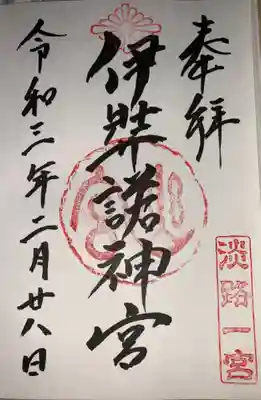 奉拝
淡路一宮
伊弉諾神宮
令和三年二月廿八日